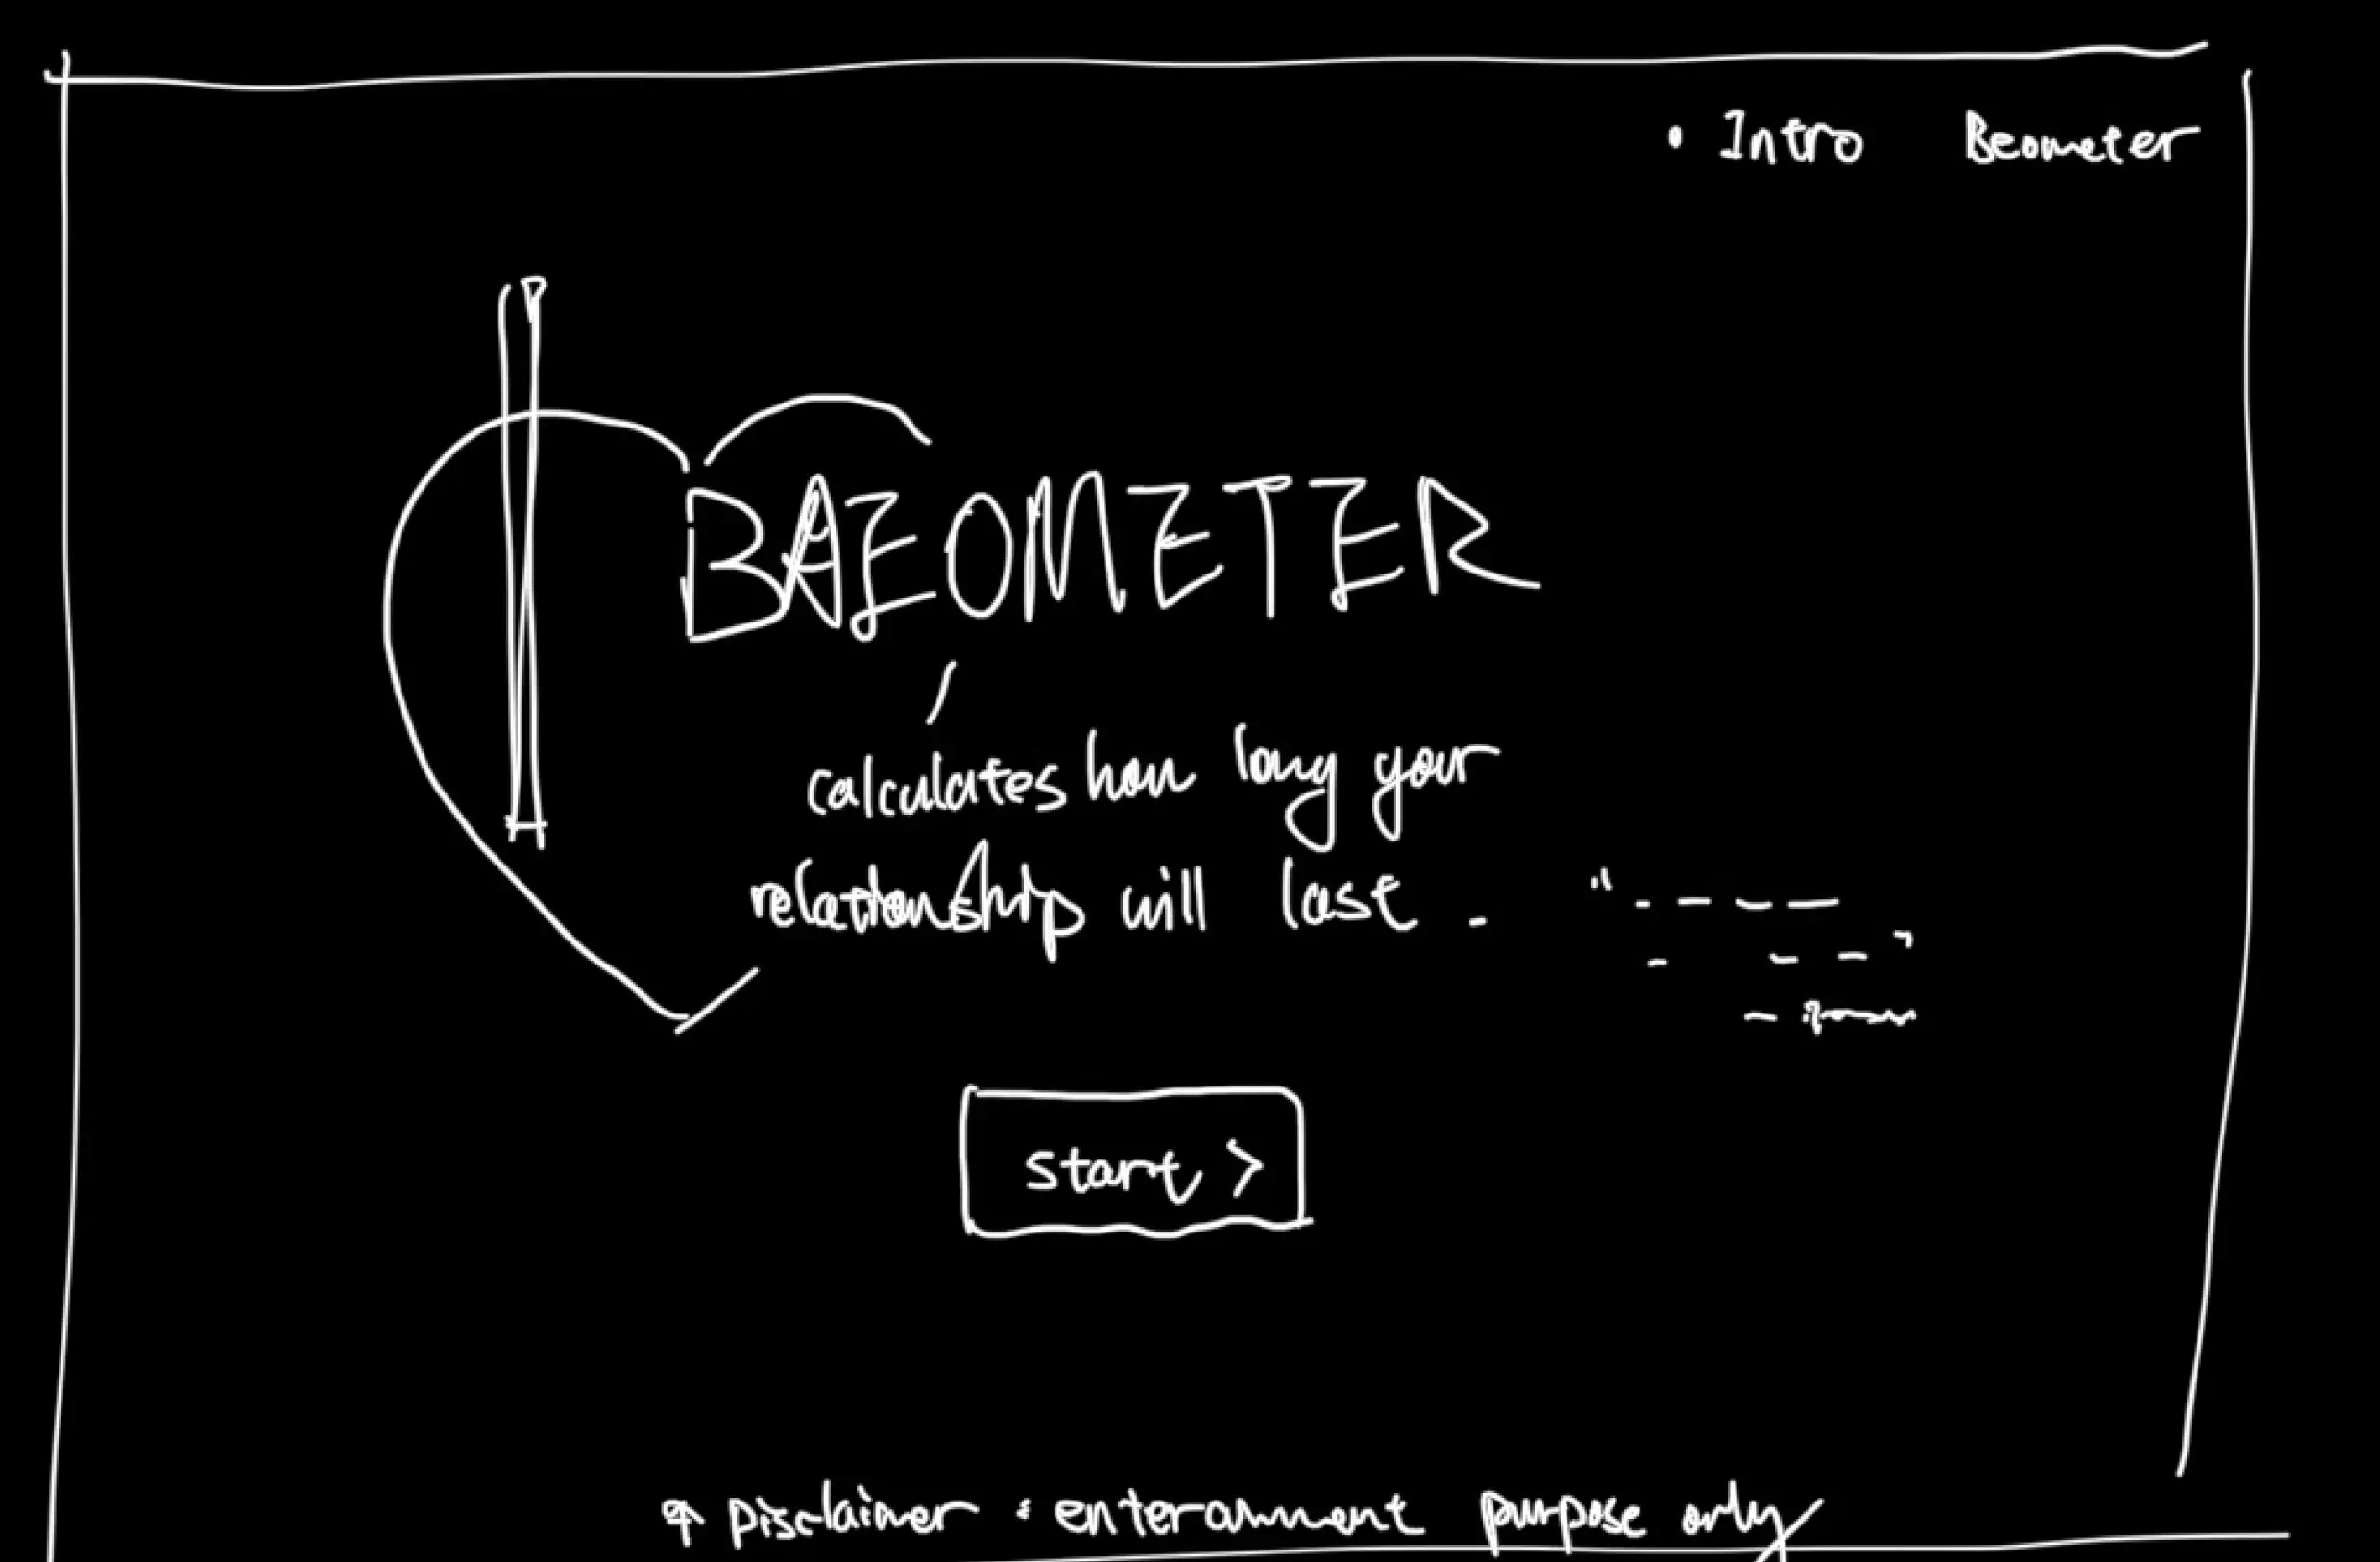 • Intro Beometer
BAEOMETER
calculates how long your
relationship will last.
start >
* Disclaimer : enterainment purpose only